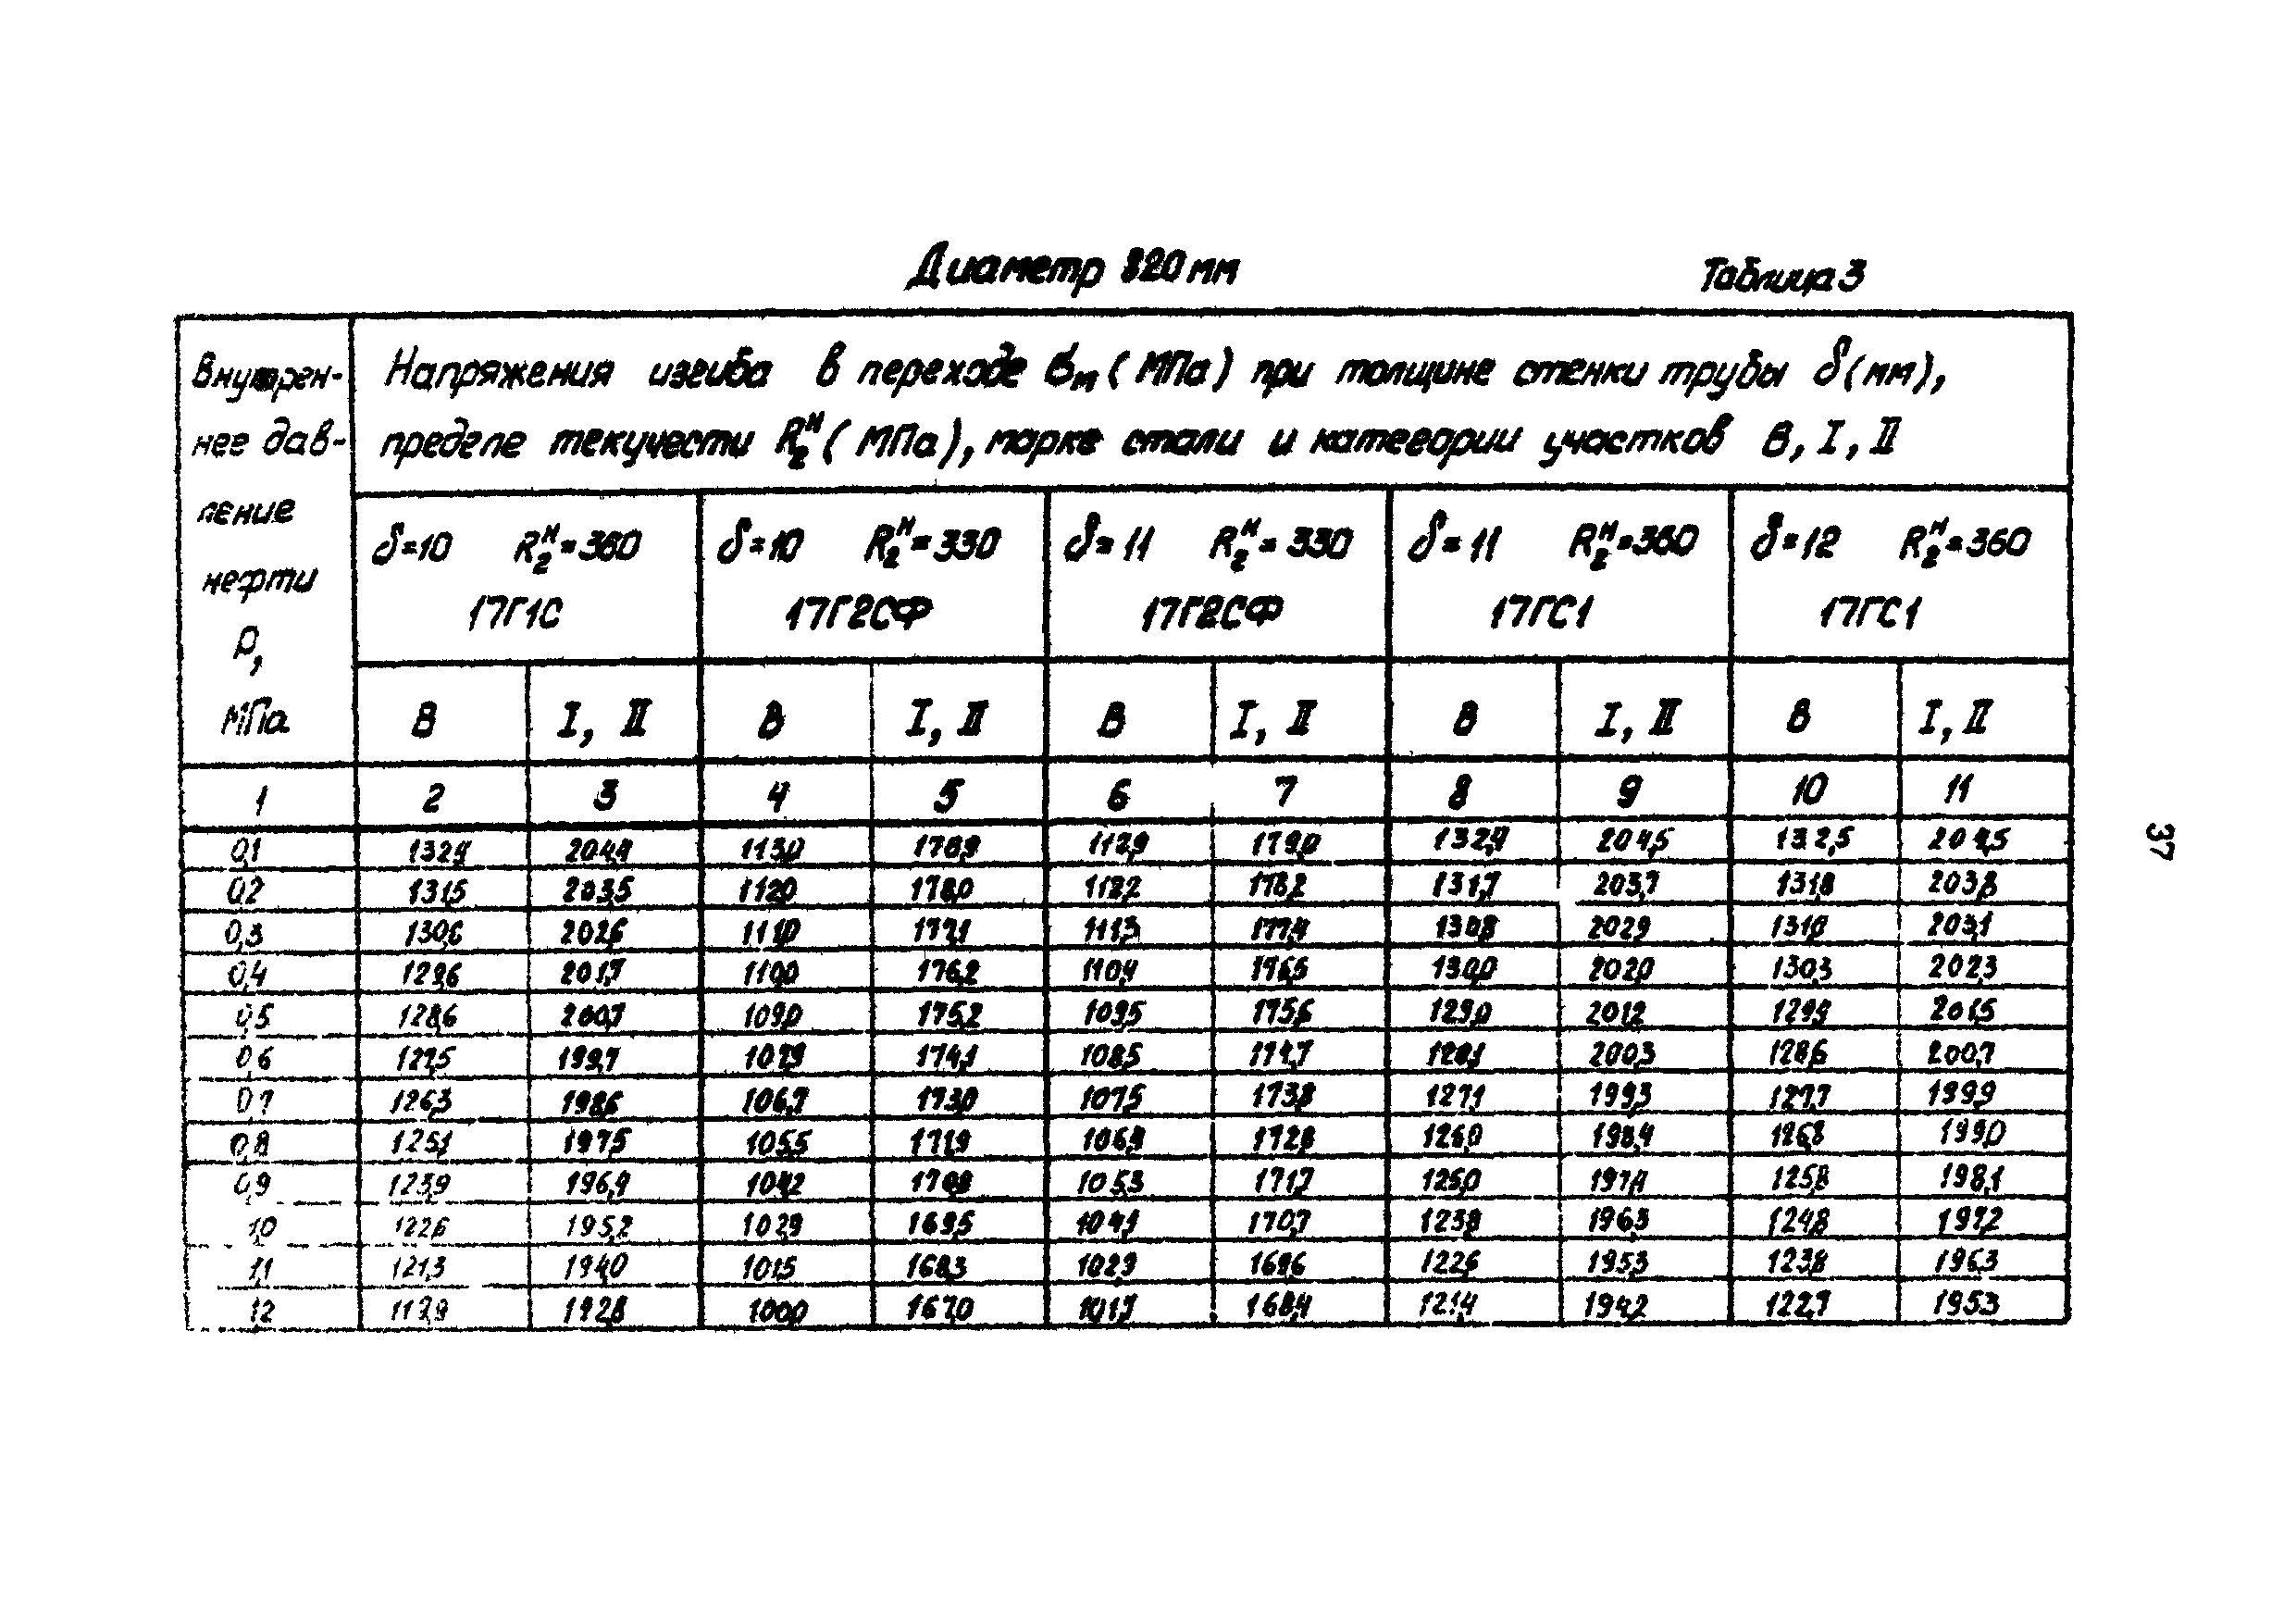 Диаметр 820 мм
Таблица 3
Внутрен-
нее дав-
ление
нефти
P,
МПа
Напряжения изгиба в переходе бм (МПа) при толщине стенки трубы δ (мм),
пределе текучести R₂ᴴ (МПа), марке стали и категории участков В, I, II
δ=10 R₂ᴴ=360 δ=10 R₂ᴴ=330 δ=11 R₂ᴴ=330 δ=11 R₂ᴴ=360 δ=12 R₂ᴴ=360
17Г1С 17Г2СФ 17Г2СФ 17ГС1 17ГС1
В I, II В I, II В I, II В I, II В I, II
1 2 3 4 5 6 7 8 9 10 11
0,1 132,4 204,4 113,0 178,9 112,9 179,0 132,4 204,5 132,5 204,5
0,2 131,5 203,5 112,0 178,0 112,2 178,2 131,7 203,7 131,8 203,8
0,3 130,6 202,6 111,0 177,1 111,3 177,4 130,8 202,9 131,0 203,1
0,4 129,6 201,7 110,0 176,2 110,4 176,5 130,0 202,0 130,3 202,3
0,5 128,6 200,7 109,0 175,2 109,5 175,6 129,0 201,2 129,4 201,5
0,6 127,5 199,7 107,9 174,1 108,5 174,7 128,1 200,3 128,6 200,7
0,7 126,3 198,6 106,7 173,0 107,5 173,8 127,1 199,3 127,7 199,9
0,8 125,1 197,5 105,5 171,9 106,4 172,8 126,0 198,4 126,8 199,0
0,9 123,9 196,4 104,2 170,8 105,3 171,7 125,0 197,4 125,8 198,1
1,0 122,6 195,2 102,9 169,5 104,1 170,7 123,8 196,3 124,8 197,2
1,1 121,3 194,0 101,5 168,3 102,9 169,6 122,6 195,3 123,8 196,3
1,2 119,9 192,8 100,0 167,0 101,7 168,4 121,4 194,2 122,7 195,3
37